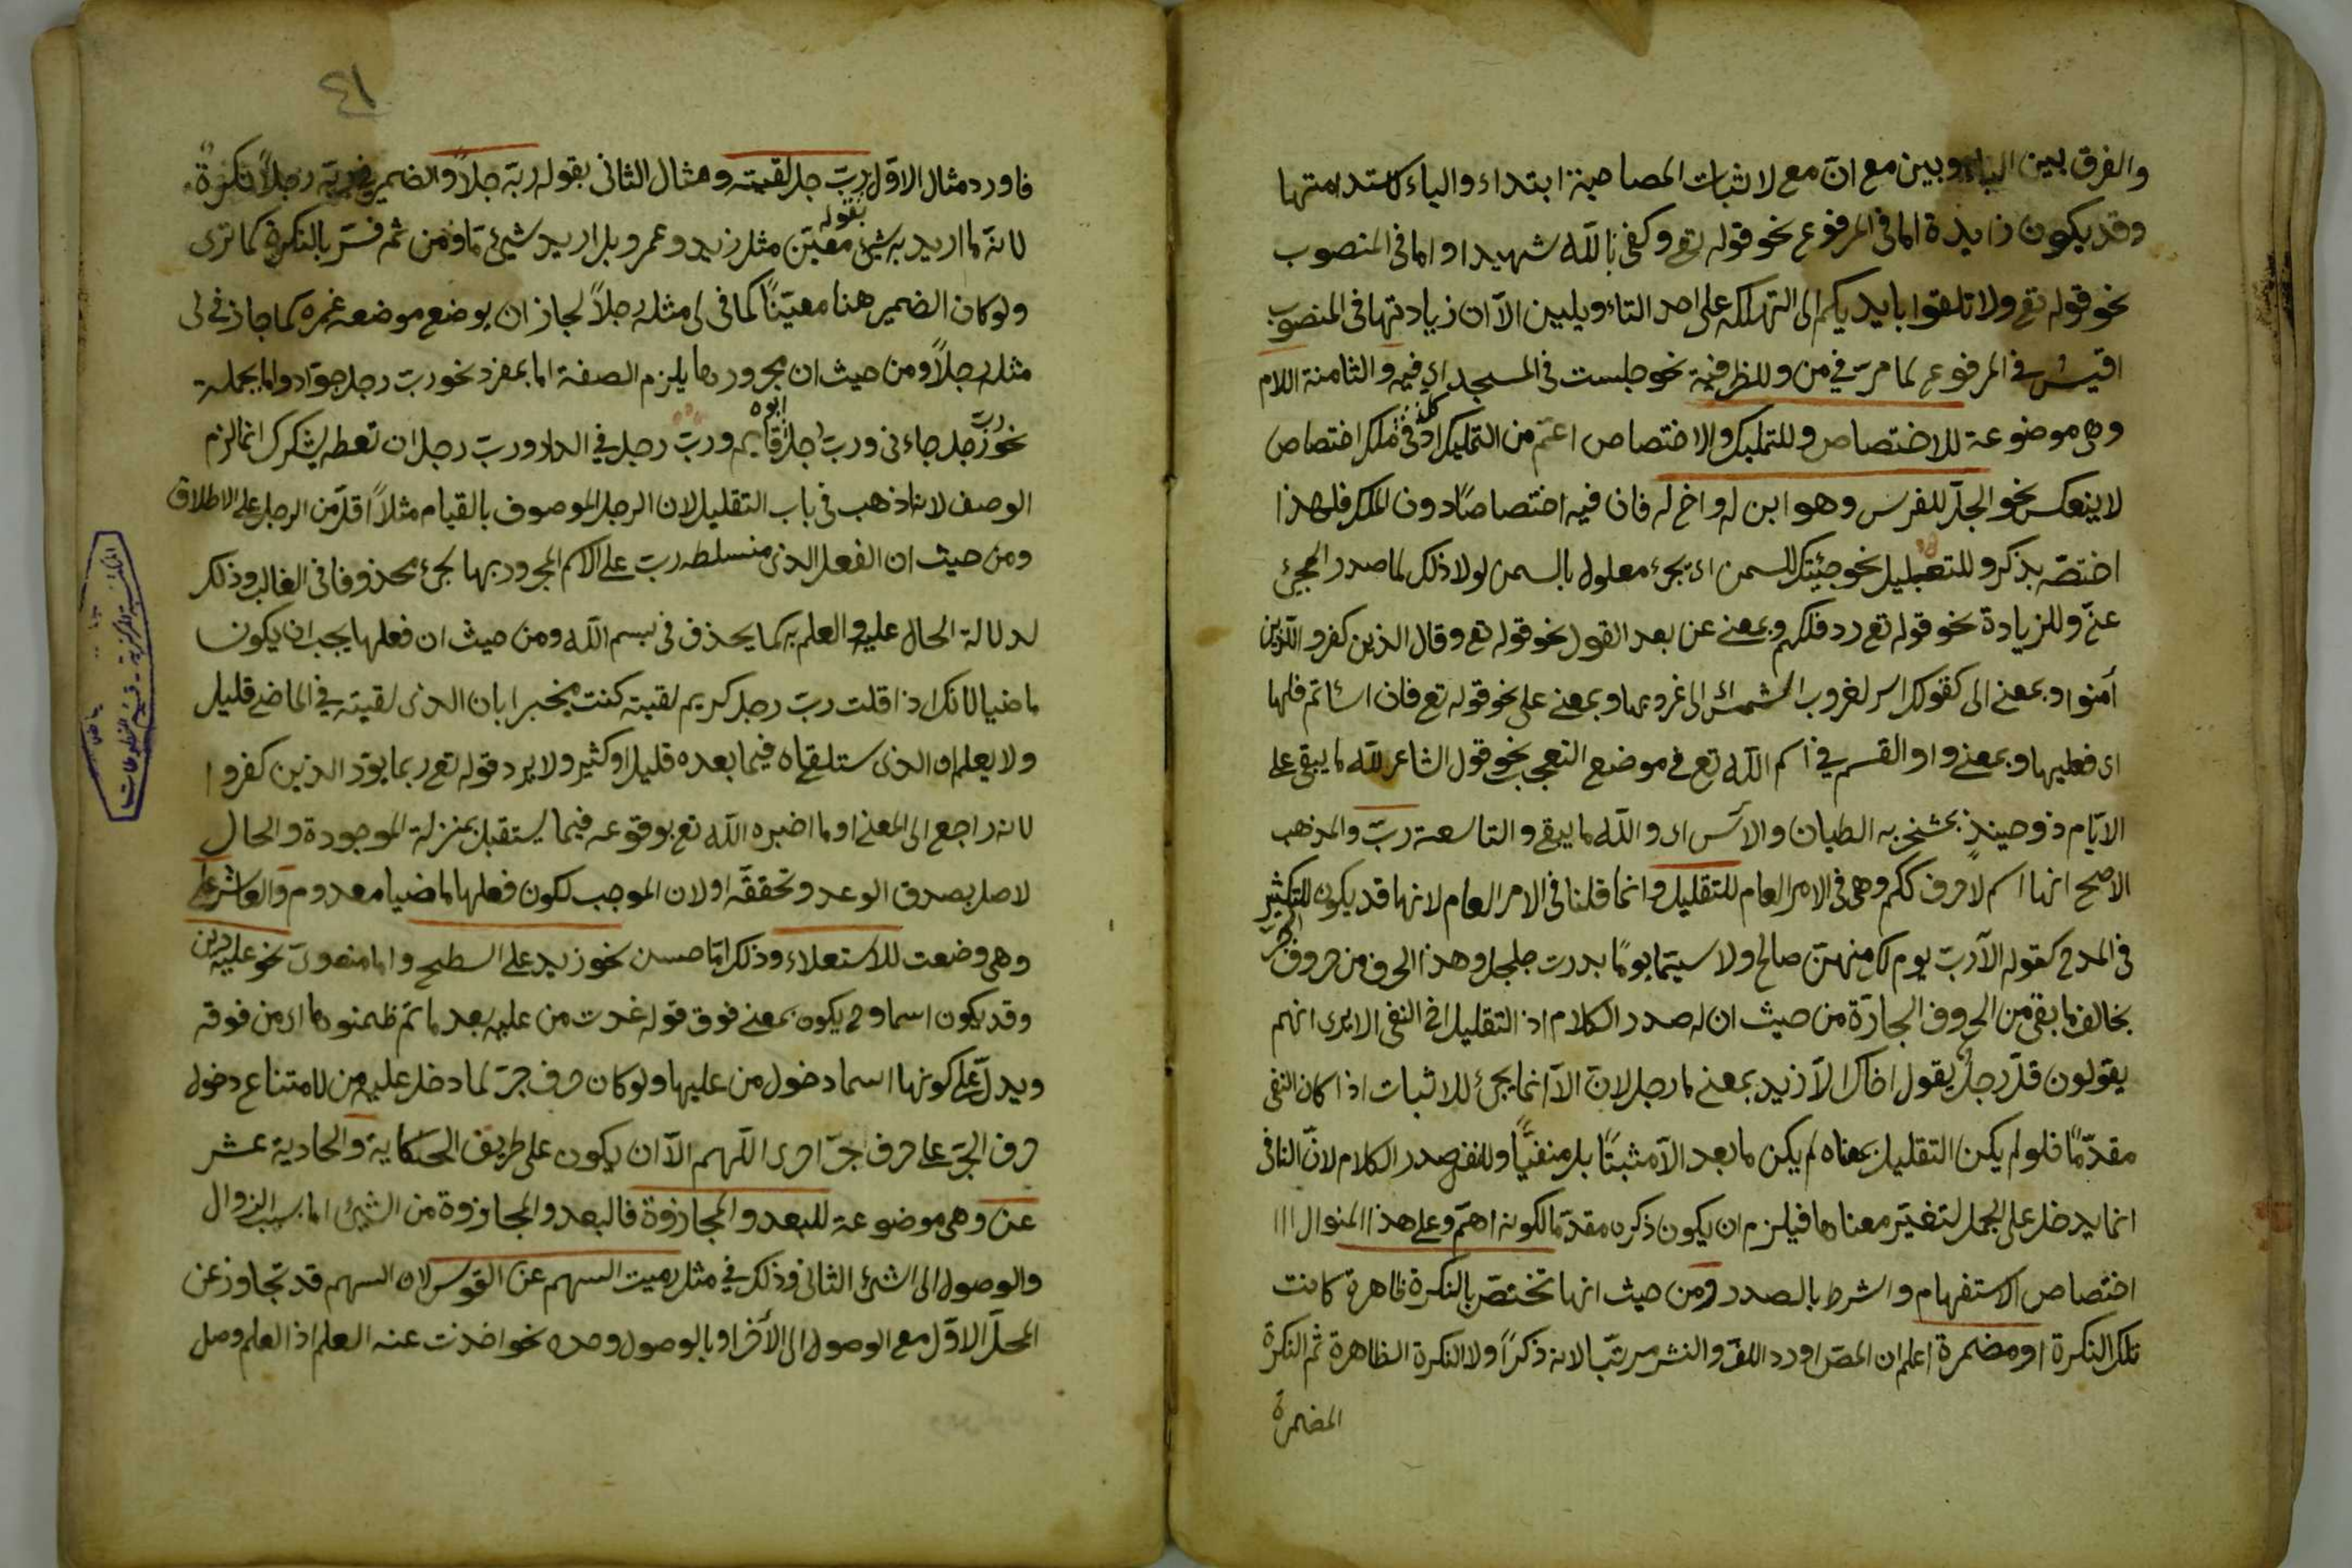 والفرق بين الباء وبين مع ان مع لاثبات المصاحبة ابتداء والباء لاستدامتها
وقد يكون زايدة اما فى المرفوع نحو قوله تع وكفى بالله شهيدا واما فى المنصوب
نحو قوله تع ولا تلقوا بايديكم الى التهلكه على احد التاويلين الآ ان زيادتها فى المنصوب
اقيس فى المرفوع لما مرّ فى من وللظرفية نحو جلست فى المسجد اى فيه والثامنة اللام
وهى موضوعة للاختصاص وللتمليك والاختصاص اعمّ من التمليك اذ فى كلّ ملك اختصاص
لا ينعكس نحو الجلّ للفرس وهو ابن له واخ له فان فيه اختصاصًا دون الملك فلهذا
اختصّه بذكر وللتعليل نحو جئتك للسمن اى مجئ معلول بالسمن لولا ذلك لما صدر المجئ
عنّى وللزيادة نحو قوله تع ردف لكم وبمعنى عن بعد القول نحو قوله تع وقال الذين كفروا للذين
آمنوا وبمعنى الى كقولك اسر لغروب الشمس اى الى غروبها وبمعنى على نحو قوله تع فان اسأتم فلها
اى فعليها وبمعنى واو القسم فى اسم الله تع فى موضع التعجب نحو قول الشاعر لله ما يبقى على
الايّام ذو حيد بمشمخر به الظيان والآس اى والله ما يبقى والتاسعة ربّ والمذهب
الاصح انها اسم لا حرف ككم وهى فى الامر العام للتقليل وانما قلنا فى الامر العام لانها قد يكون للتكثير
فى المدح كقوله الآ ربّ يوم لك منهنّ صالح ولا سيّما يومًا بدارت جلجل وهذا الحرف من حروف الجرّ
يخالف ما بقى من الحروف الجارّة من حيث ان له صدر الكلام اذ التقليل اخ النفى الا يرى انهم
يقولون قلّ رجلٌ يقول اذاك الّا زيد بمعنى ما رجل لان الآ انما يجئ للاثبات اذا كان النفى
مقدّمًا فلو لم يكن التقليل بمعناه لم يكن ما بعد الآ مثبتًا بل منفيًّا وللنفى صدر الكلام لانّ النافى
انما يدخل على الجمل لتغيّر معناها فيلزم ان يكون ذكره مقدّما لكونه اهمّ وعلى هذا المنوال
اختصاص الاستفهام والشرط بالصدر ومن حيث انها تختصّ بالنكرة ظاهرة كانت
تلك النكرة او مضمرة اعلم ان المصّ اورد اللف والنشر مرتّبا لانه ذكر اولا النكرة الظاهرة ثم النكرة
المضمرة
٤١
فاورد مثال الاوّل ربّ رجل لقيته ومثال الثانى بقوله ربّه رجلًا والضمير فى ربّه رجلًا نكرةٌ
لانه ما اريد به شئ معيّن بقوله مثل زيد وعمرو بل اريد شئ ما ومن ثم فسّر بالنكرة كما ترى
ولو كان الضمير هنا معيّنًا كما فى لى مثله رجلًا لجاز ان يوضع موضعه غيره كما جاز فى لى
مثله رجلًا ومن حيث ان مجرورها يلزم الصفة اما بمفرد نحو ربّ رجل جوّاد واما بجملة
نحو ربّ رجل جاءنى وربّ رجل ابوه قايم وربّ رجل فى الدار وربّ رجل ان تعطه يشكرك انما لزم
الوصف لانه اذهب فى باب التقليل لان الرجل الموصوف بالقيام مثلًا اقلّ من الرجل على الاطلاق
ومن حيث ان الفعل الذى تسلطه ربّ على الاسم المجرور بها يجئ محذوفا فى الغالب وذلك
لدلالة الحال عليه والعلم به كما يحذف فى بسم الله ومن حيث ان فعلها يجب ان يكون
ماضيا لانك اذا قلت ربّ رجل كريم لقيته كنت مخبرا بان الذى لقيته فى الماضى قليل
ولا يعلم ان الذى ستلقاه فيما بعده قليل او كثير ولا يرد قوله تع ربما يودّ الذين كفروا
لانه راجع الى المعنى او ما اخبره الله تع بوقوعه فيما يستقبل بمنزلة الموجودة والحال
لاصل بصدق الوعد وتحققه او لان الموجب لكون فعلها ماضيا معدوم والعاشر على
وهى وضعت للاستعلاء وذلك امّا حسىّ نحو زيد على السطح واما معنوىّ نحو عليه دين
وقد يكون اسما وح يكون بمعنى فوق قوله غدت من عليه بعد ما تم ظمئوها اى من فوقه
ويدلّ على كونها اسما دخول من عليها ولو كان حرف جرّ لما دخل عليه من لامتناع دخول
حرف الجرّ على حرف جرّ اخرى اللهم الآ ان يكون على طريق الحكاية والحادية عشر
عن وهى موضوعة للبعد والمجاوزة فالبعد والمجاوزة من الشئ اما بسبب الزوال
والوصول الى الشئ الثانى وذلك فى مثل رميت السهم عن القوس لان السهم قد تجاوز عن
المحلّ الاوّل مع الوصول الى الآخر او بالوصول وحده نحو اخذت عنه العلم اذ العلم وصل